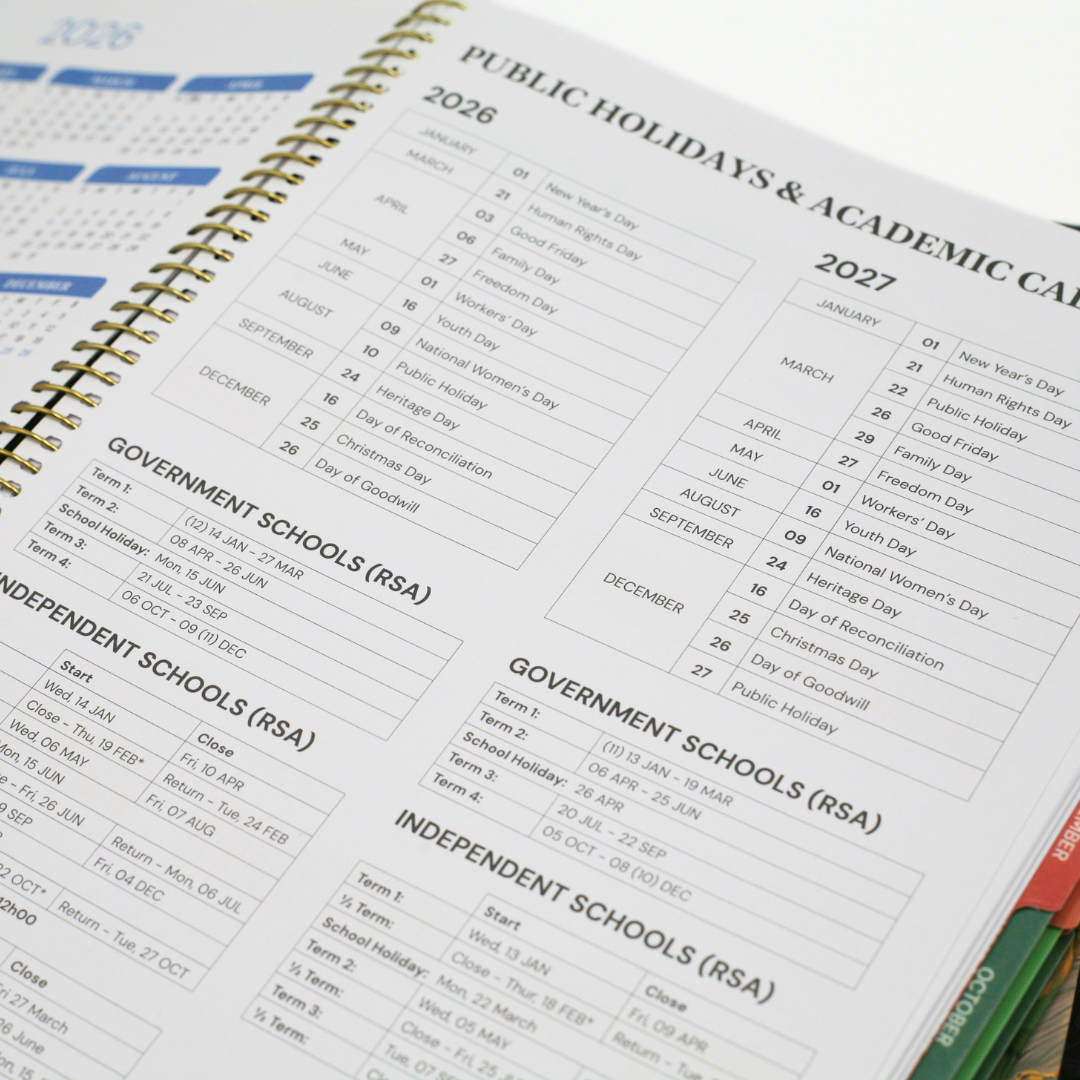 2026
MARCH
APRIL
JULY
AUGUST
DECEMBER
PUBLIC HOLIDAYS & ACADEMIC CAL
2026
JANUARY 01 New Year's Day
MARCH 21 Human Rights Day
APRIL 03 Good Friday
06 Family Day
27 Freedom Day
MAY 01 Workers' Day
JUNE 16 Youth Day
AUGUST 09 National Women's Day
10 Public Holiday
SEPTEMBER 24 Heritage Day
DECEMBER 16 Day of Reconciliation
25 Christmas Day
26 Day of Goodwill
GOVERNMENT SCHOOLS (RSA)
Term 1: (12) 14 JAN - 27 MAR
Term 2: 08 APR - 26 JUN
School Holiday: Mon, 15 JUN
Term 3: 21 JUL - 23 SEP
Term 4: 06 OCT - 09 (11) DEC
INDEPENDENT SCHOOLS (RSA)
Start Close
Wed, 14 JAN Fri, 10 APR
Close - Thu, 19 FEB* Return - Tue, 24 FEB
Wed, 06 MAY Fri, 07 AUG
Mon, 15 JUN
e - Fri, 26 JUN Return - Mon, 06 JUL
9 SEP Fri, 04 DEC
22 OCT* Return - Tue, 27 OCT
12h00
Close
Fri 27 March
26 June
on, 15
2027
JANUARY 01 New Year's Day
MARCH 21 Human Rights Day
22 Public Holiday
26 Good Friday
29 Family Day
APRIL 27 Freedom Day
MAY 01 Workers' Day
JUNE 16 Youth Day
AUGUST 09 National Women's Day
SEPTEMBER 24 Heritage Day
DECEMBER 16 Day of Reconciliation
25 Christmas Day
26 Day of Goodwill
27 Public Holiday
GOVERNMENT SCHOOLS (RSA)
Term 1: (11) 13 JAN - 19 MAR
Term 2: 06 APR - 25 JUN
School Holiday: 26 APR
Term 3: 20 JUL - 22 SEP
Term 4: 05 OCT - 08 (10) DEC
INDEPENDENT SCHOOLS (RSA)
Start Close
Term 1: Wed, 13 JAN Fri, 09 APR
½ Term: Close - Thur, 18 FEB* Return - Tue,
School Holiday: Mon, 22 March
Term 2: Wed, 05 MAY
½ Term: Close - Fri, 25
Term 3: Tue, 07 SE
½ Term: Clos
MBER
OCTOBER